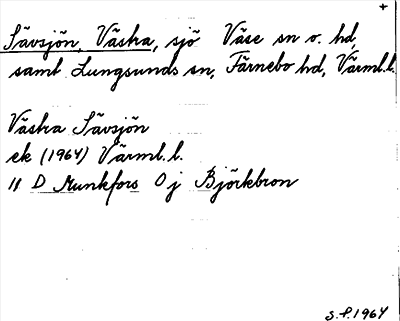 +
Sävsjön, Västra, sjö Väse sn o. hd,
samt Lungsunds sn, Färnebo hd, Värml.l.
Västra Sävsjön
ek (1964) Värml.l.
11 D Munkfors Oj Björkbron
S.P.1964